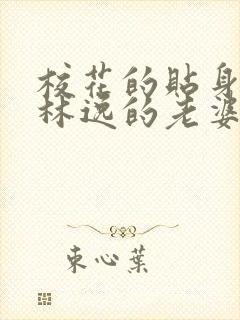 校花的貼身
林逸的老婆
束心葉